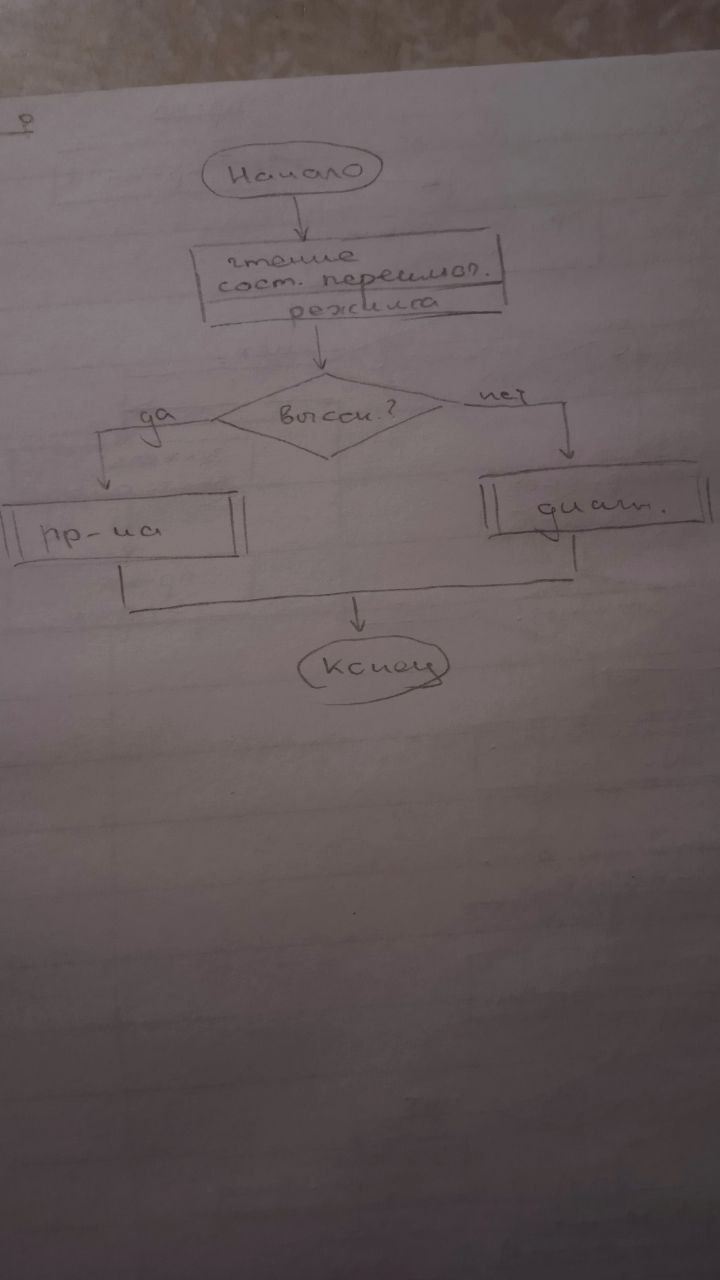 Начало
чтение
сост. переключ.
режима
Высок.?
да
нет
пр-ка
диагн.
Конец